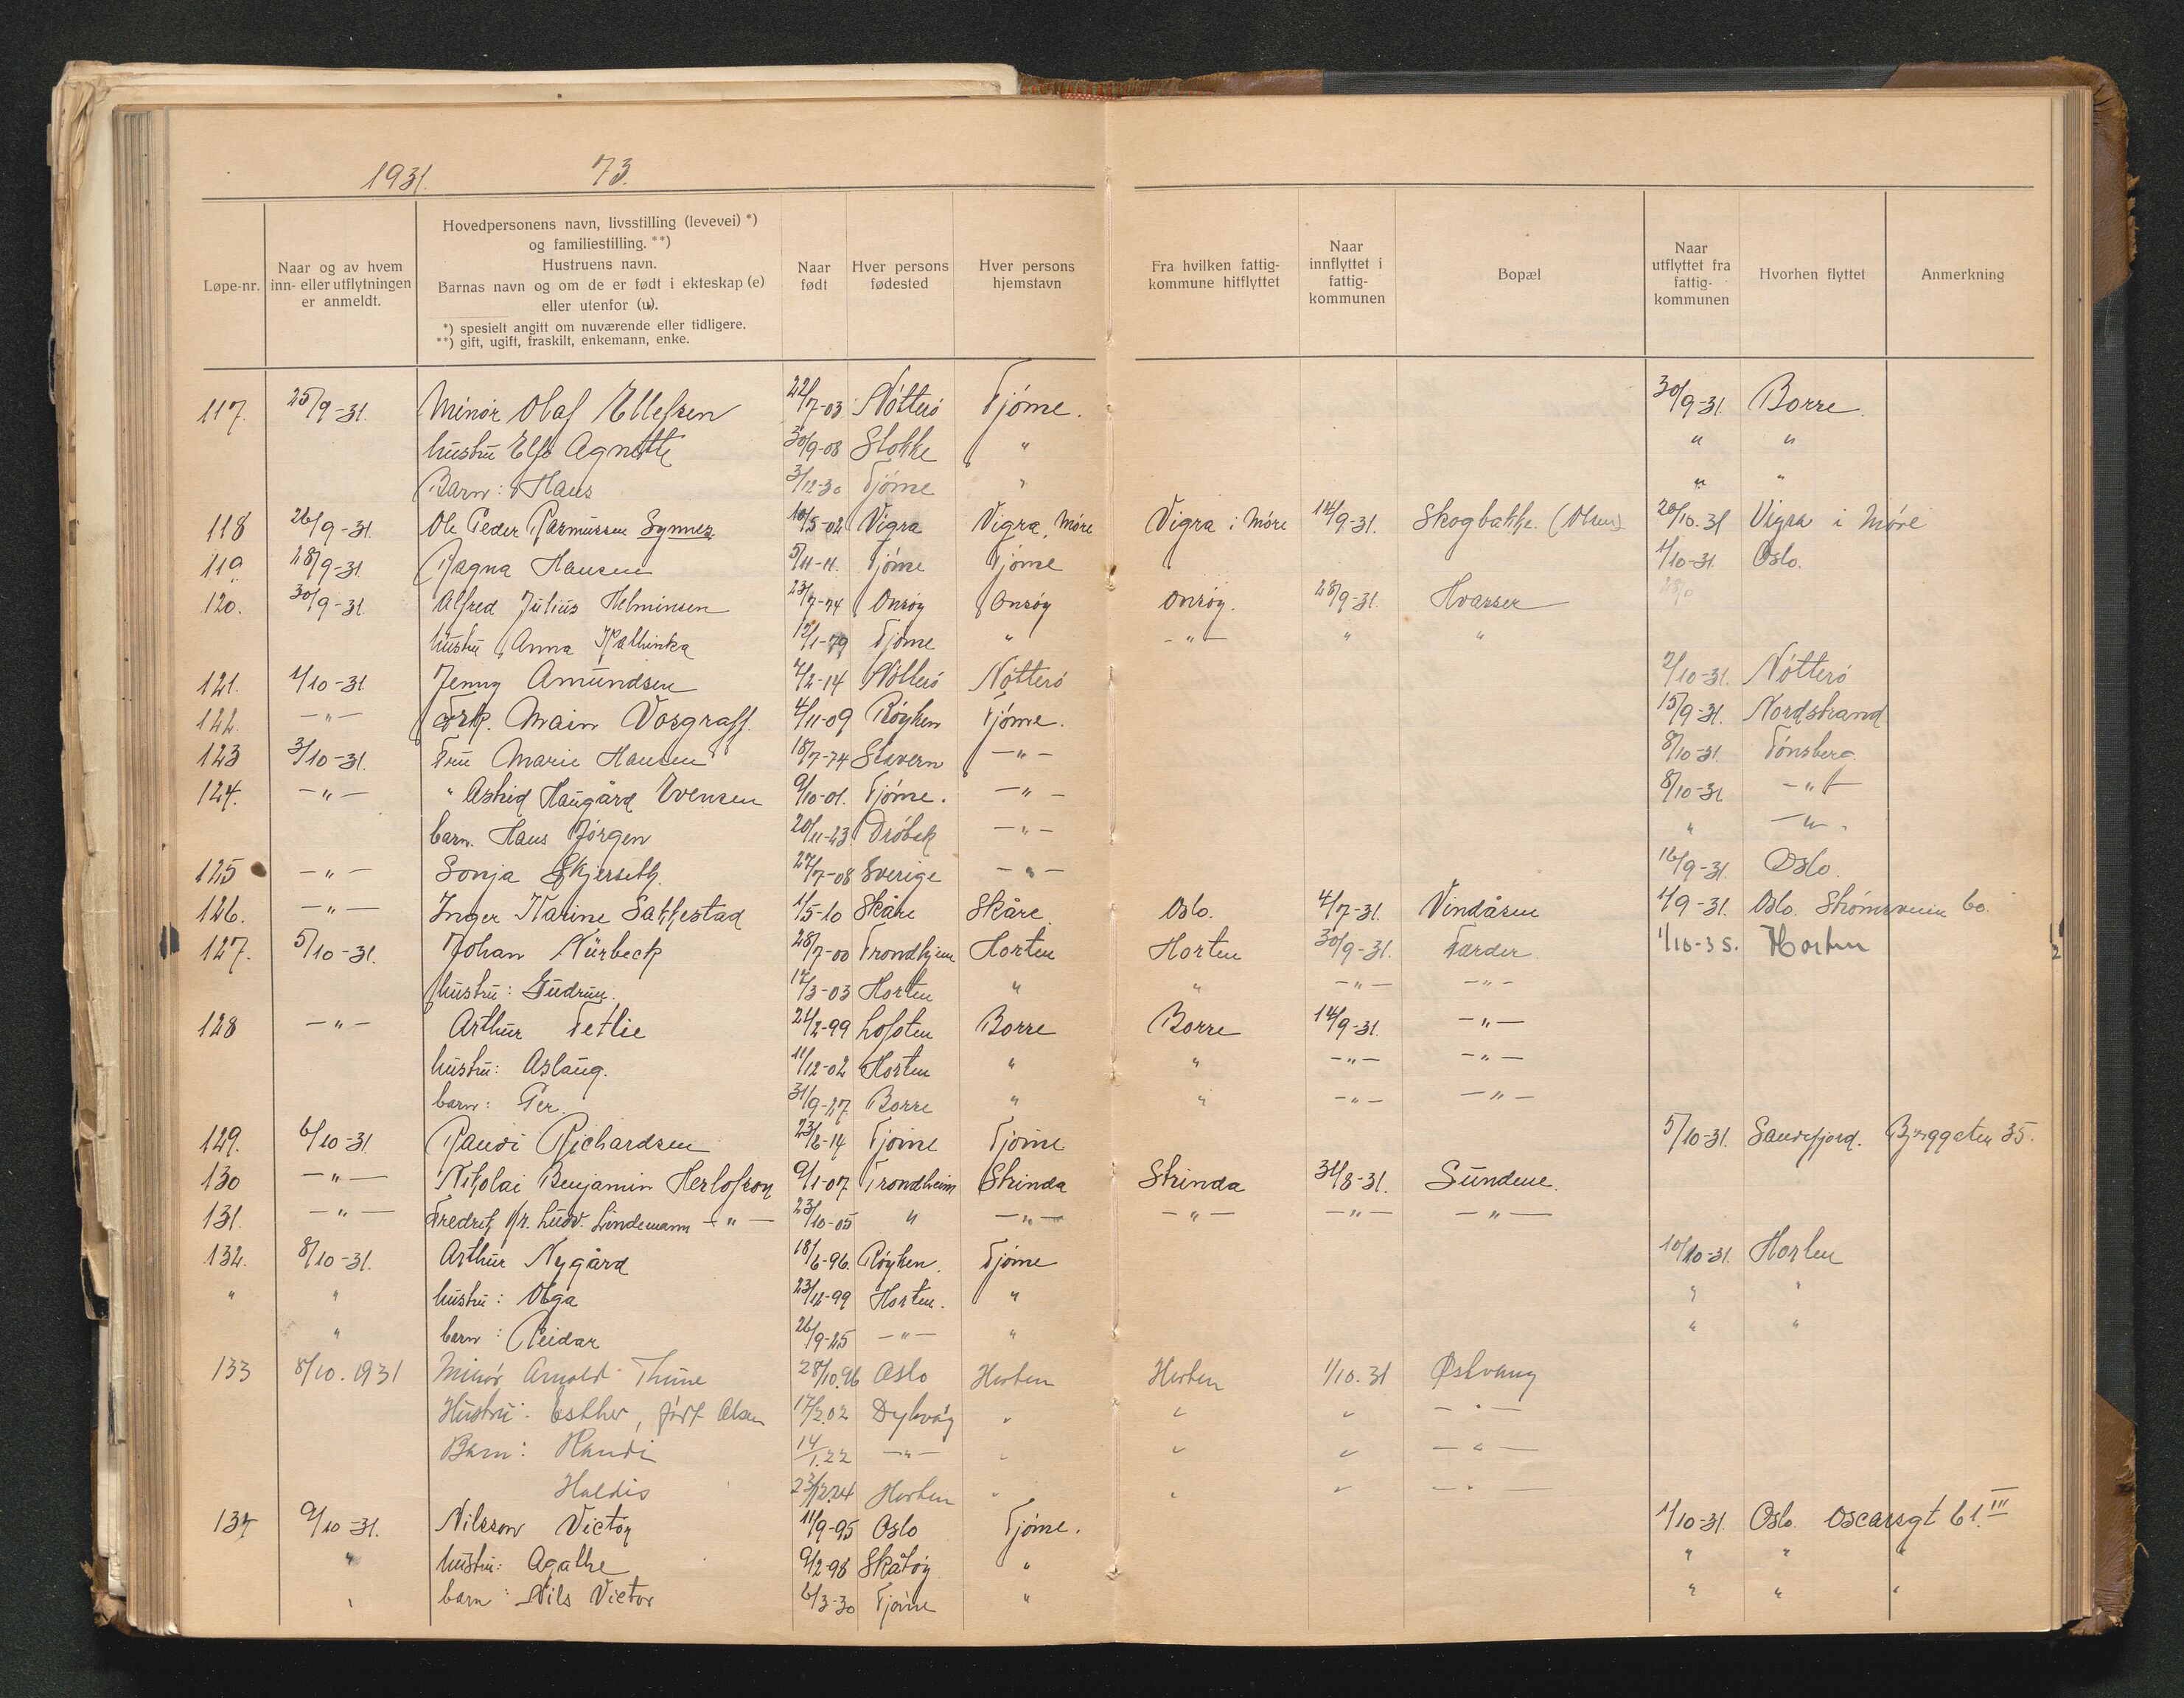 1931. 73.
Løpe-nr. | Naar og av hvem inn- eller utflytningen er anmeldt. | Hovedpersonens navn, livsstilling (levevei) *) og familiestilling. **) Hustruens navn. Barnas navn og om de er født i ekteskap (e) eller utenfor (u). *) spesielt angitt om nuværende eller tidligere. **) gift, ugift, fraskilt, enkemann, enke. | Naar født | Hver persons fødested | Hver persons hjemstavn | Fra hvilken fattig-kommune hitflyttet | Naar innflyttet i fattig-kommunen | Bopæl | Naar utflyttet fra fattig-kommunen | Hvorhen flyttet | Anmerkning
117. 25/9-31. Minør Olaf Ellefsen 22/7-03 Nøtterø Tjøme. 30/9-31. Borre.
hustru Agnette 30/9-08 Stokke " " "
Barn: Hans 3/12-30 Tjøme " " "
118 26/9-31. Ole Peder Rasmussen Synnes 10/5-02 Vigra Vigra, Møre Vigra i Møre 14/9-31. Skogbakke. (Olsen) 20/10-31 Vigra i Møre
119 28/9-31. Ragna Hansen 5/11-11. Tjøme Tjøme 1/10-31 Oslo.
120. 30/9-31 Alfred Julius Helminsen 23/7-74 Onsøy Onsøy Onsøy. 28/9-31. Hvasser
hustru Anna Kathinka 12/1-79 Tjøme " - " - " "
121. 1/10-31. Jenny Amundsen 7/2-14 Nøtterø Nøtterø 2/10-31. Nøtterø
122. - " - Frk. Main Vosgraff. 4/11-09 Røyken Tjøme. 15/9-31. Nordstrand
123 3/10-31. Fru Marie Hansen 18/7-74 Stavern - " - 8/10-31. Tønsberg.
124. - " - " Astrid Haugård Evensen 9/10-01. Tjøme. - " - 8/10-31 - " -
barn. Hans Jørgen 20/11-23. Drøbak - " - " - " -
125 - " - Sonja Skjerseth. 27/7-08 Sverige - " - 16/9-31. Oslo.
126. - " - Inger Karine Sakkestad 1/5-10 Skåre Skåre. Oslo. 4/7-31. Vindåsen 1/9-31. Oslo. Strømsveien 60.
127. 5/10-31. Johan Nürbeck 28/7-00 Trondhjem Horten Horten 30/9-31. Færder Horten
hustru: Gudrun. 12/3-03 Horten " " - " - - " -
128 - " - Arthur Tetlie 21/2-99 Lofoten Borre Borre 14/9-31. - " -
hustru: Aslaug. 11/12-02 Horten " " - " - - " -
barn: Per. 31/9-27. Borre " " - " - - " -
129. 6/10-31 Randi Richardsen 23/6-14 Tjøme Tjøme 5/10-31. Sandefjord. Bjerggaten 35.
130 - " - Nikolai Benjamin Herlofson 9/1-07. Trondheim Strinda Strinda 31/8-31. Sundene.
131. - " - Fredrik Kr. Ludv. Lindemann - " - 23/10-05 " - " - - " - - " - - " -
132. 8/10-31. Arthur Nygård 18/6-96. Røyken. Tjøme 10/10-31. Horten
" " hustru: Olga 23/12-99 Horten. " " "
" barn: Reidar 26/9-25 - " - " " "
133 8/10.1931 Minør Arnold Thune 28/10.96 Oslo Horten Horten 1/10.31 Østvang
Hustru: Esther, født Olsen 17/2.02 Dybvåg " " " - " -
Barn: Randi 14/1.22 - " - " " " - " -
Haldis 23/12.24 Horten " " " - " -
134 9/10-31. Nilsson Victor 11/9-95 Oslo Tjøme. 1/10-31. Oslo. Oscarsgt 61.III
" hustru: Agathe 9/2-98 Skåtøy " " " "
" barn: Nils Victor 6/3-30 Tjøme " " " "